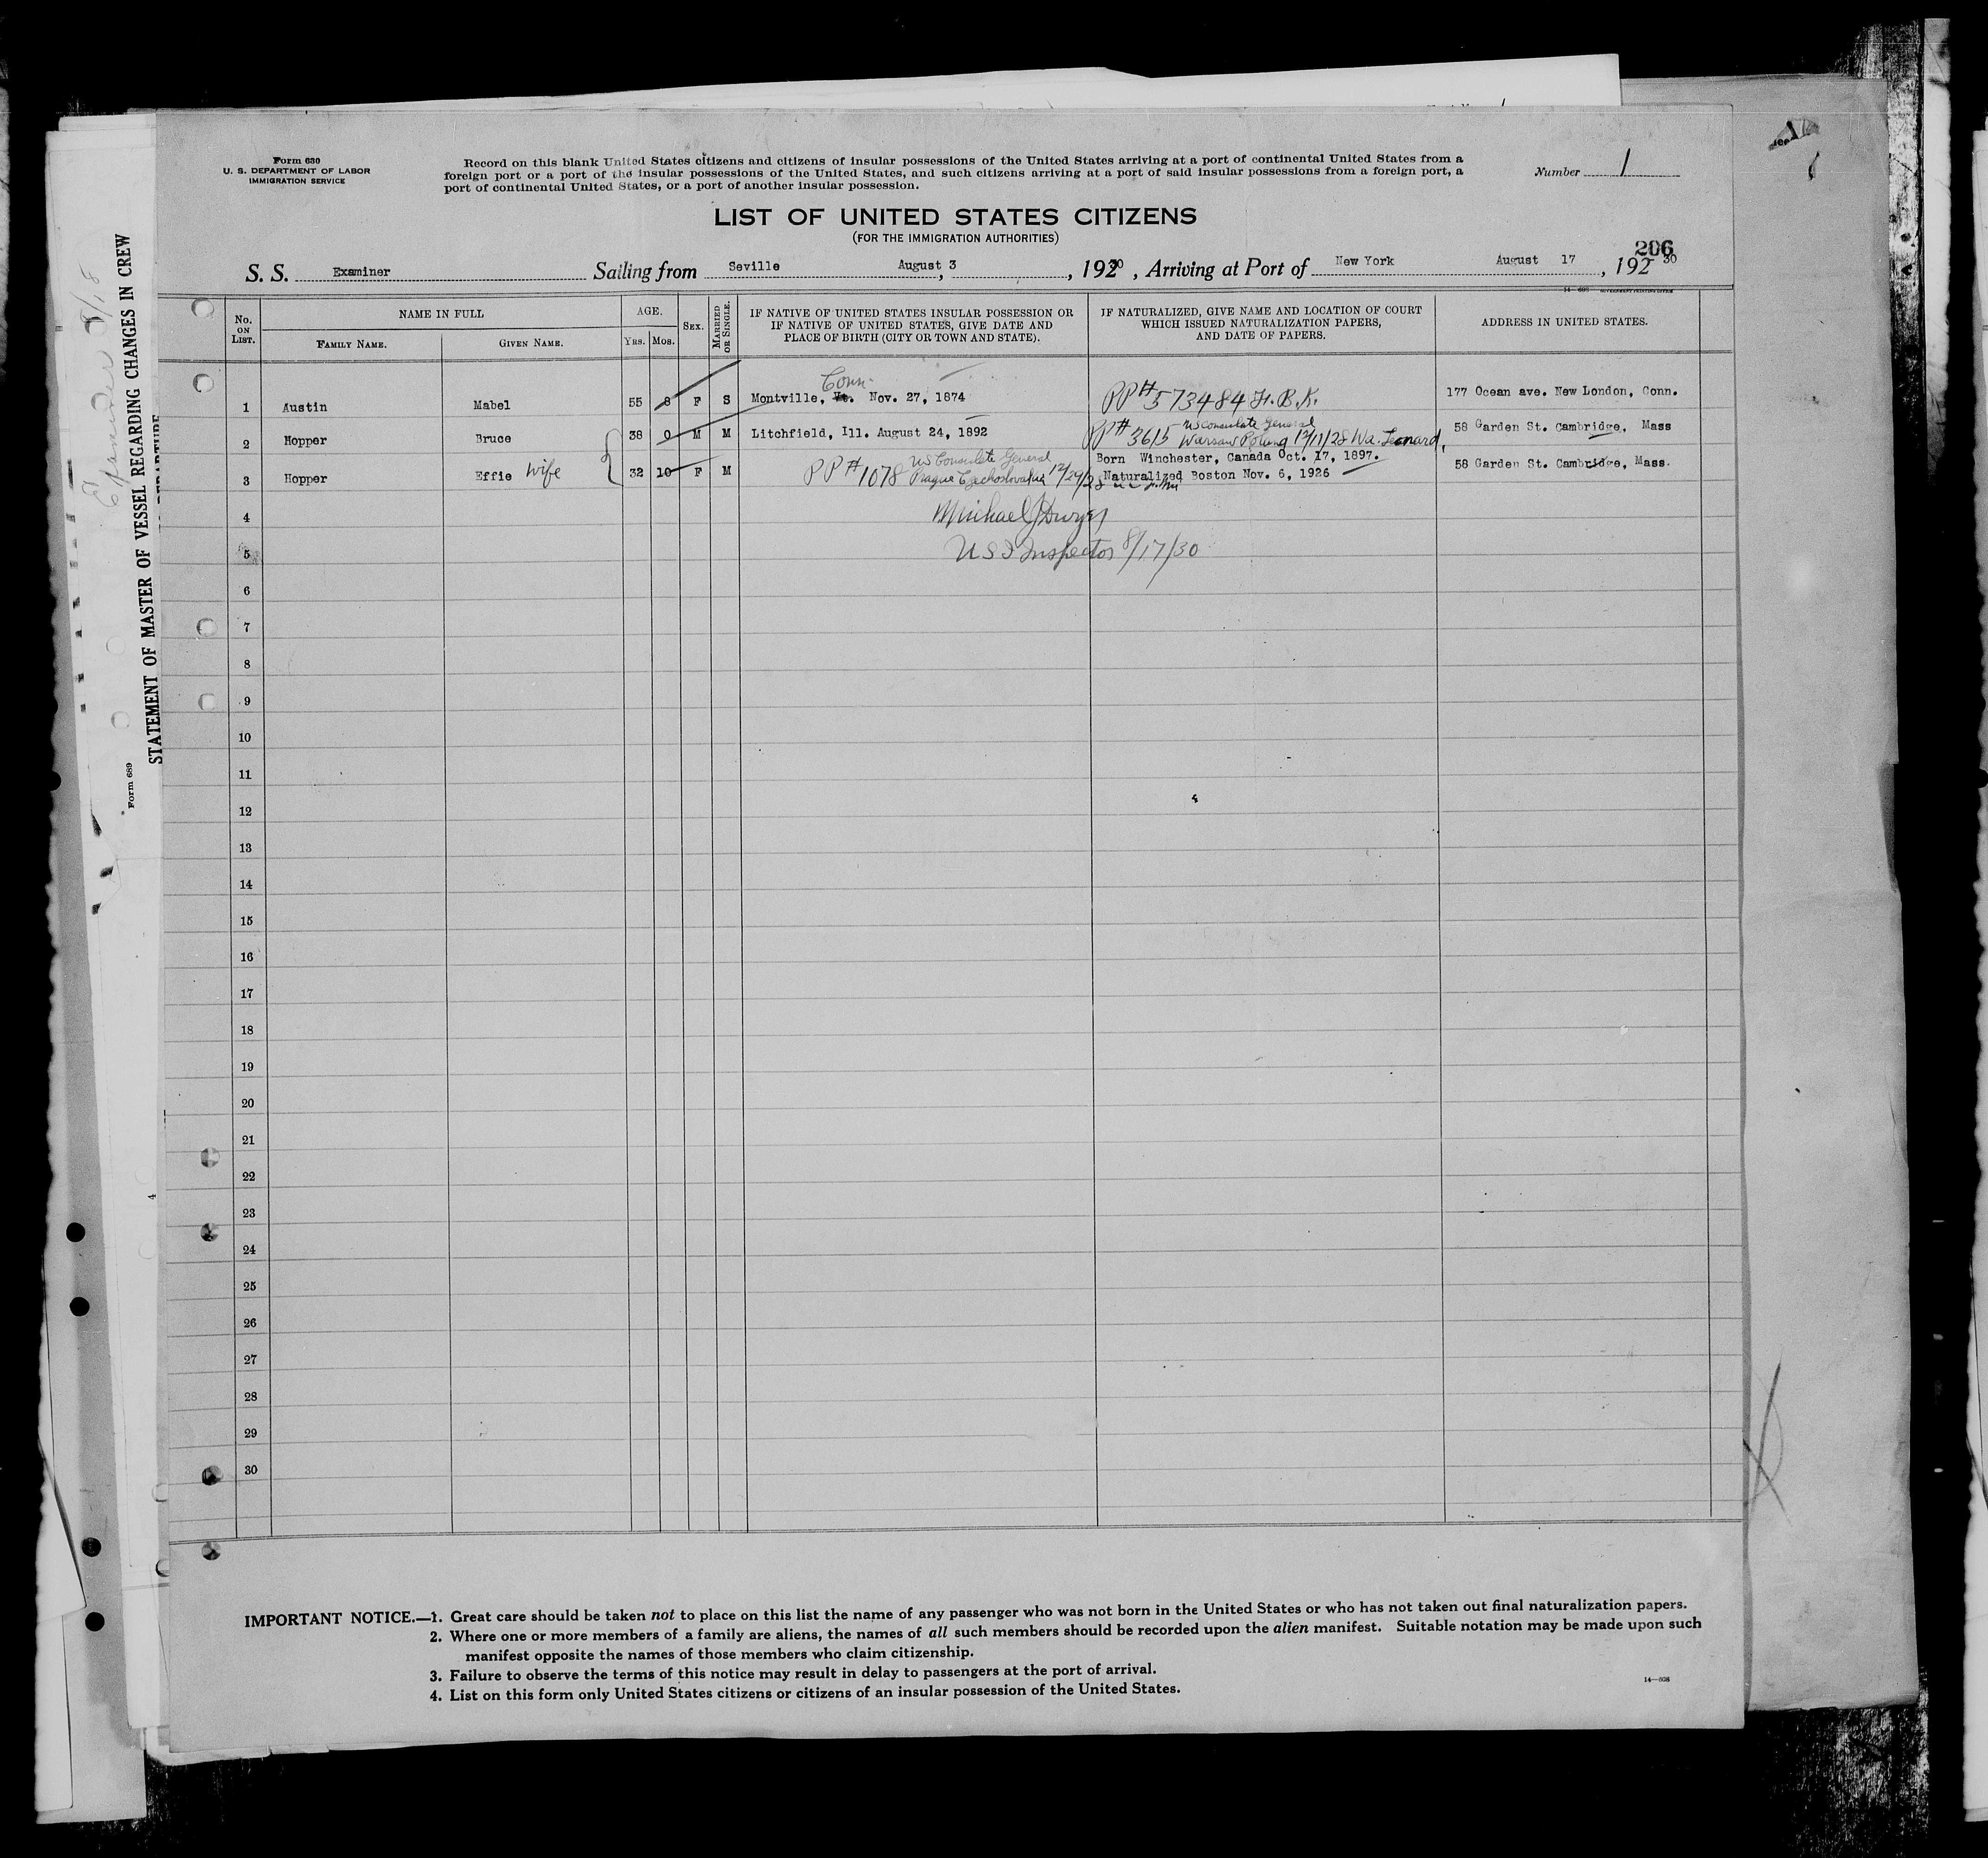 Form 630
U. S. DEPARTMENT OF LABOR
IMMIGRATION SERVICE
Record on this blank United States citizens and citizens of insular possessions of the United States arriving at a port of continental United States from a
foreign port or a port of the insular possessions of the United States, and such citizens arriving at a port of said insular possessions from a foreign port, a
port of continental United States, or a port of another insular possession.
Number 1
LIST OF UNITED STATES CITIZENS
(FOR THE IMMIGRATION AUTHORITIES)
206
S. S. Examiner Sailing from Seville August 3, 1930, Arriving at Port of New York August 17, 192 30
No. ON LIST.
NAME IN FULL
FAMILY NAME.
GIVEN NAME.
AGE.
YRS. MOS.
SEX.
MARRIED OR SINGLE.
IF NATIVE OF UNITED STATES INSULAR POSSESSION OR
IF NATIVE OF UNITED STATES, GIVE DATE AND
PLACE OF BIRTH (CITY OR TOWN AND STATE).
IF NATURALIZED, GIVE NAME AND LOCATION OF COURT
WHICH ISSUED NATURALIZATION PAPERS,
AND DATE OF PAPERS.
ADDRESS IN UNITED STATES.
Conn.
1 Austin Mabel 55 8 F S Montville, Nov. 27, 1874 PP# 573484 177 Ocean ave. New London, Conn.
US Consulate General
2 Hopper Bruce 38 0 M M Litchfield, Ill. August 24, 1892 PP# 3615 Warsaw Poland 12/11/28 58 Garden St. Cambridge, Mass
US Consulate General
Born Winchester, Canada Oct. 17, 1897.
3 Hopper Effie Wife 32 10 F M PP# 1078 Prague Czechoslovakia 12/29/28 Naturalized Boston Nov. 6, 1926 58 Garden St. Cambridge, Mass.
4 Michael J Dwyer
5 U S I Inspector 8/17/30
6
7
8
9
10
11
12
13
14
15
16
17
18
19
20
21
22
23
24
25
26
27
28
29
30
IMPORTANT NOTICE.—1. Great care should be taken not to place on this list the name of any passenger who was not born in the United States or who has not taken out final naturalization papers.
2. Where one or more members of a family are aliens, the names of all such members should be recorded upon the alien manifest. Suitable notation may be made upon such
manifest opposite the names of those members who claim citizenship.
3. Failure to observe the terms of this notice may result in delay to passengers at the port of arrival.
4. List on this form only United States citizens or citizens of an insular possession of the United States.
14—608
STATEMENT OF MASTER OF VESSEL REGARDING CHANGES IN CREW
Form 689
4